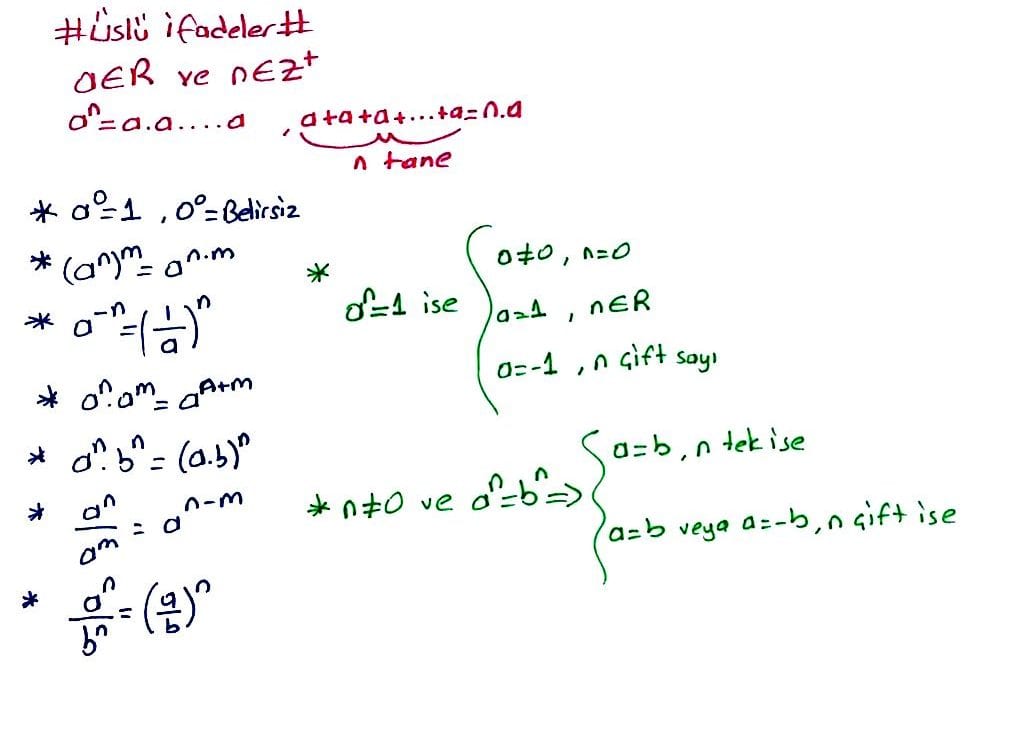 #Üslü ifadeler#
a∈R ve n∈Z⁺
aⁿ=a.a....a , a+a+a+...+a=n.a
n tane
* a⁰=1 , 0⁰=Belirsiz
* (aⁿ)ᵐ= aⁿ·ᵐ
* a⁻ⁿ=(1/a)ⁿ
* aⁿ.aᵐ= aᴬ⁺ᵐ
* aⁿ.bⁿ= (a.b)ⁿ
* aⁿ/aᵐ = aⁿ⁻ᵐ
* aⁿ/bⁿ = (a/b)ⁿ
* aⁿ=1 ise
a≠0 , n=0
a=1 , n∈R
a=-1 , n çift sayı
* n≠0 ve aⁿ=bⁿ=>
a=b , n tek ise
a=b veya a=-b, n çift ise